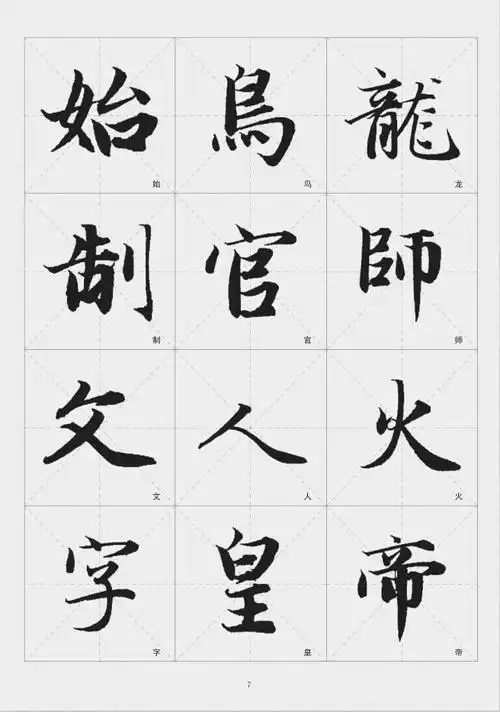 龍師火帝
龙师火帝
鳥官人皇
鸟官人皇
始制文字
始制文字
7